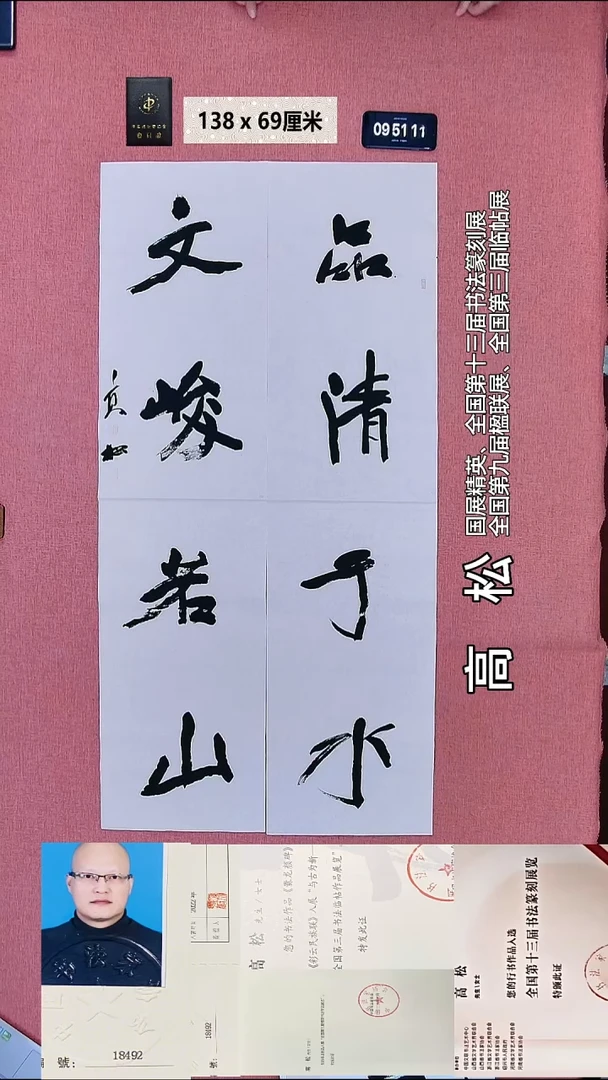 138 x 69厘米
09 51 11
品清于水
文峻若山
高松
国展精英、全国第十三届书法篆刻展
全国第九届楹联展、全国第三届临帖展
號:
18492
18492
2022年
高 松 先生/女士
您的书法作品
《彩云民族联》入展“与古为新——
全国第三届书法临帖作品展览”
特发此证
高 松
先生/女士
您的行书作品入选
全国第十三届书法篆刻展览
特颁此证